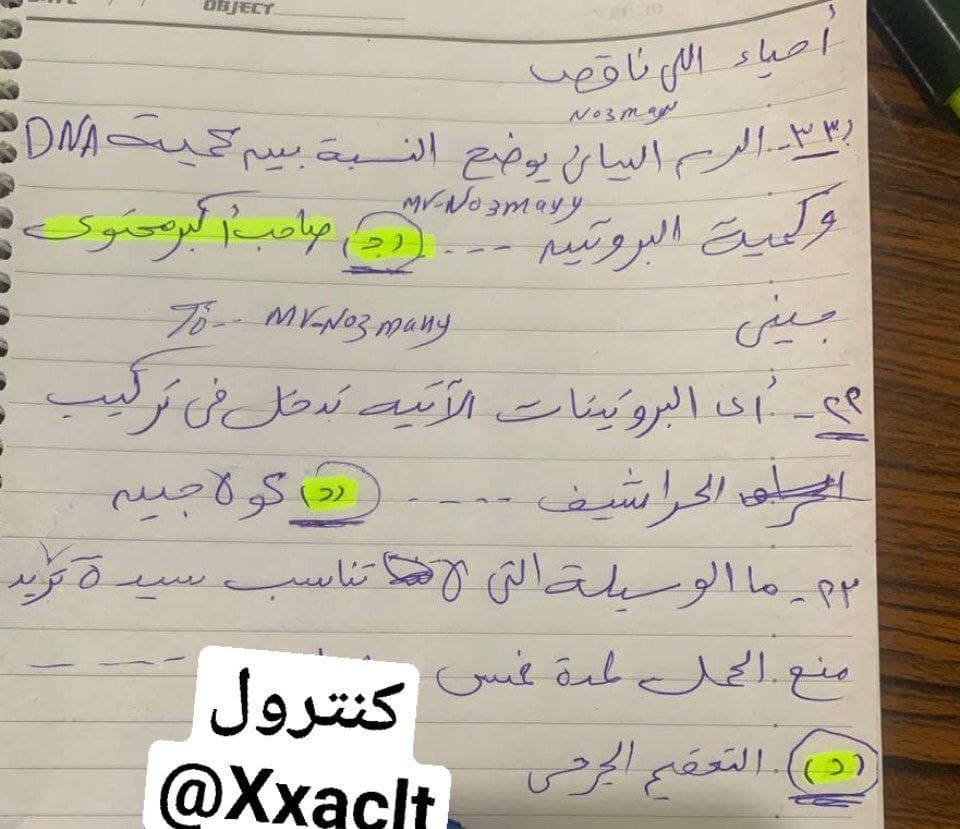 OBJECT
أحياء اللي ناقصه
No3many
٣٣- الرسم البياني يوضح النسبة بين كمية DNA
Mr-No3manyy
وكمية البروتين --- (ج) صاحب أكبر محتوى
جيني
To-- Mr-No3many
٢٩- أى البروتينات الآتيه تدخل فى تركيب
الحراشيف ---- (د) كولاجين
٢٢- ما الوسيلة التى لا تناسب سيدة تريد
منع الحمل لمدة خمس
(د) التعقيم الجرحى
كنترول
@Xxaclt